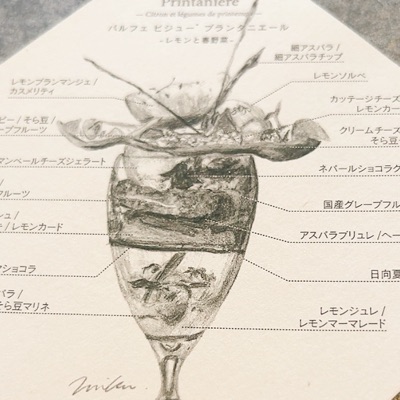 Printanière
— Citron et légumes de printemps —
パルフェ ビジュー® プランタニエール
- レモンと春野菜 -
細アスパラ /
細アスパラチップ
レモンブランマンジェ /
カスメリティ
レモンソルベ
カッテージチーズ
レモンカー
ピー / そら豆 /
ープフルーツ
クリームチーズ
そら豆
マンベールチーズジェラート
ネパールショコラク
フルーツ
国産グレープフル
シュ /
/ レモンカード
アスパラブリュレ / ヘー
ショコラ
日向夏
パラ /
そら豆マリネ
レモンジュレ /
レモンマーマレード